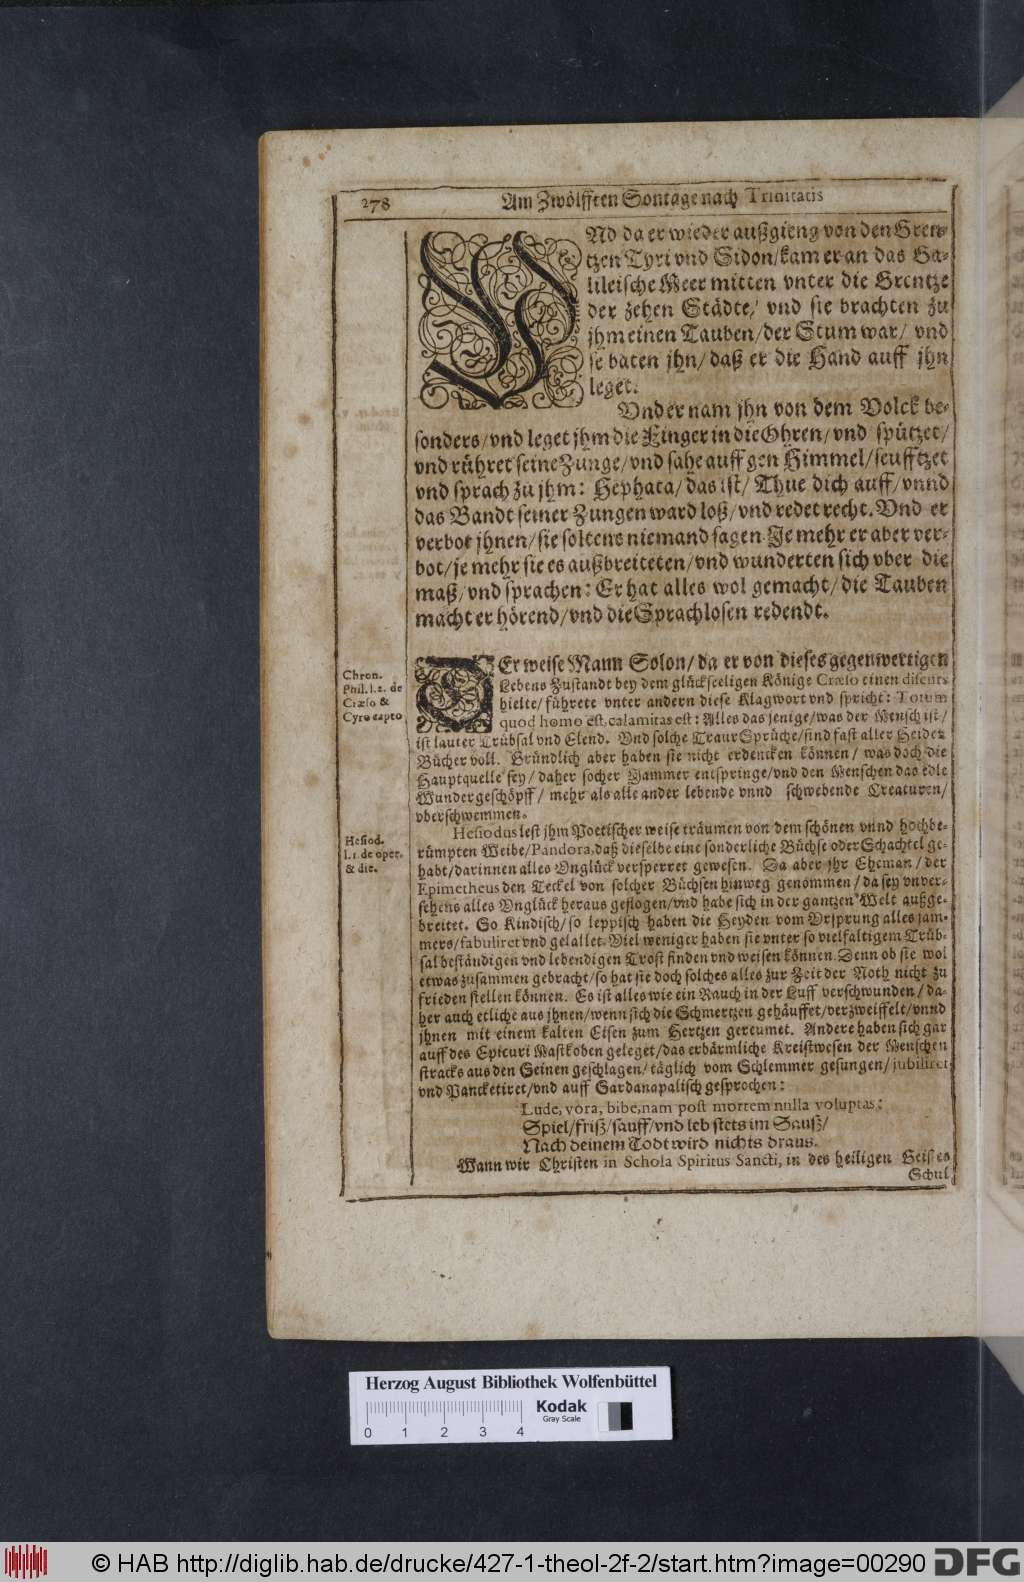 278 Am Zwölfften Sontage nach Trinitatis
VNd da er wieder außgieng von den Gren-
tzen Tyri vnd Sidon/ kam er an das Ga-
lileische Meer mitten vnter die Grentze
der zehen Städte/ vnd sie brachten zu
jhm einen Tauben/ der Stum war/ vnd
se baten jhn/ daß er die Hand auff jhn
leget.
Vnd er nam jhn von dem Volck be-
sonders/ vnd leget jhm die Finger in die Ohren/ vnd spützet/
vnd rühret seine Zunge/ vnd sahe auff gen Himmel/ seufftzet
vnd sprach zu jhm: Hephata/ das ist/ Thue dich auff/ vnnd
das Bandt seiner Zungen ward loß/ vnd redet recht. Vnd er
verbot jhnen/ sie soltens niemand sagen. Je mehr er aber ver-
bot/ je mehr sie es außbreiteten/ vnd wunderten sich vber die
maß/ vnd sprachen: Er hat alles wol gemacht/ die Tauben
macht er hörend/ vnd die Sprachlosen redendt.
Chron.
Phil. l. 2. de
Crœso &
Cyro capto
DEr weise Mann Solon/ da er von dieses gegenwertigen
Lebens Zustandt bey dem glückseeligen Könige Crœso einen discurs
hielte/ führete vnter andern diese Klagwort vnd spricht: Totum
quod homo est, calamitas est: Alles das jenige/ was der Mensch ist/
ist lauter Trübsal vnd Elend. Vnd solche Traur Sprüche/ sind fast aller Heiden
Bücher voll. Gründlich aber haben sie nicht erdencken können/ was doch die
Hauptquelle sey/ daher socher Jammer entspringe/ vnd den Menschen das edle
Wundergeschöpff/ mehr als alle ander lebende vnnd schwebende Creaturen/
vberschwemmen.
Hesiod.
l. 1. de oper.
& die.
Hesiodus lest jhm Poetischer weise träumen von dem schönen vnnd hochbe-
rümpten Weibe/ Pandora, daß dieselbe eine sonderliche Büchse oder Schachtel ge-
habt/ darinnen alles Vnglück versperret gewesen. Da aber jhr Eheman/ der
Epimetheus den Teckel von solcher Büchsen hinweg genommen/ da sey vnver-
sehens alles Vnglück heraus geflogen/ vnd habe sich in der gantzen Welt außge-
breitet. So Kindisch/ so leppisch haben die Heyden vom Vrsprung alles jam-
mers/ fabuliret vnd gelallet. Viel weniger haben sie vnter so vielfaltigem Trüb-
sal beständigen vnd lebendigen Trost finden vnd weisen können. Denn ob sie wol
etwas zusammen gebracht/ so hat sie doch solches alles zur Zeit der Noth nicht zu
frieden stellen können. Es ist alles wie ein Rauch in der Luff verschwunden/ da-
her auch etliche aus jhnen/ wenn sich die Schmertzen gehäuffet/ verzweiffelt/ vnnd
jhnen mit einem kalten Eisen zum Hertzen gereumet. Andere haben sich gar
auff des Epicuri Mastkoben geleget/ das erbärmliche Kreistwesen der Menschen
stracks aus den Seinen geschlagen/ täglich vom Schlemmer gesungen/ jubiliret
vnd Pancketiret/ vnd auff Sardanapalisch gesprochen:
Lude, vora, bibe, nam post mortem nulla voluptas:
Spiel/ friß/ sauff/ vnd leb stets im Sauß/
Nach deinem Todt wird nichts draus.
Wann wir Christen in Schola Spiritus Sancti, in des heiligen Geistes
Schul
Herzog August Bibliothek Wolfenbüttel
Kodak
Gray Scale
0 1 2 3 4
© HAB http://diglib.hab.de/drucke/427-1-theol-2f-2/start.htm?image=00290 DFG